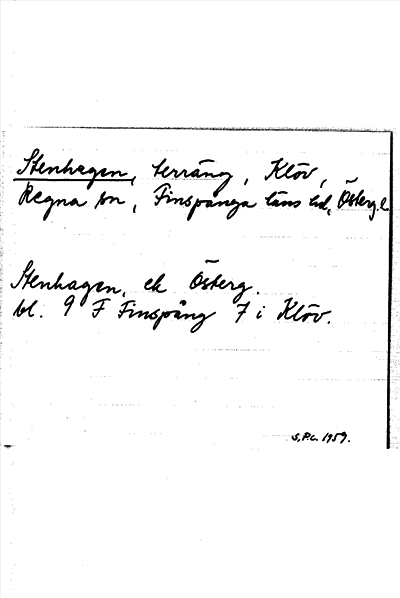 Stenhagen, terräng, Klöv,
Regna sn, Finspånga läns hd, Österg.l.
Stenhagen, ek Österg.
bl. 9 F Finspång 7 i Klöv.
S.P.G. 1959.